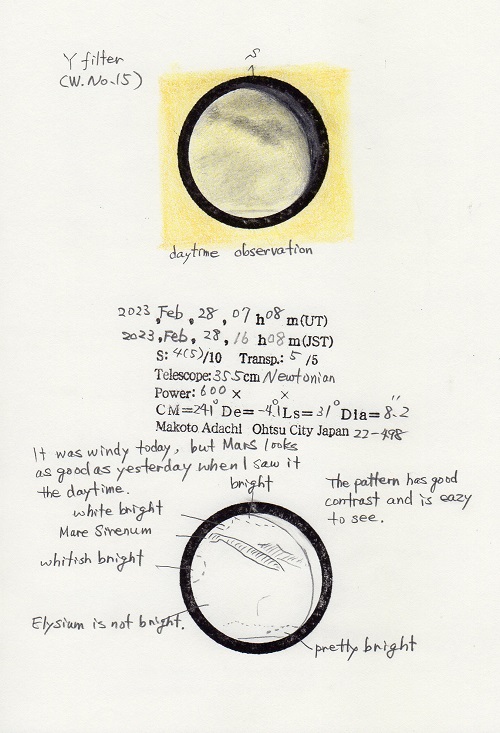 S
Y filter
(W.No.15)
daytime observation
2023, Feb, 28, 07 h 08 m (UT)
2023, Feb, 28, 16 h 08 m (JST)
S: 4(5)/10 Transp.: 5 /5
Telescope: 355cm Newtonian
Power: 600 × ×
CM=241° De=-4.1 Ls=31° Dia=8.2"
Makoto Adachi Ohtsu City Japan 22-498
It was windy today, but Mars looks
as good as yesterday when I saw it
the daytime.
bright
The pattern has good
contrast and is eazy
to see.
white bright
Mare Sirenum
whitish bright
Elysium is not bright.
pretty bright